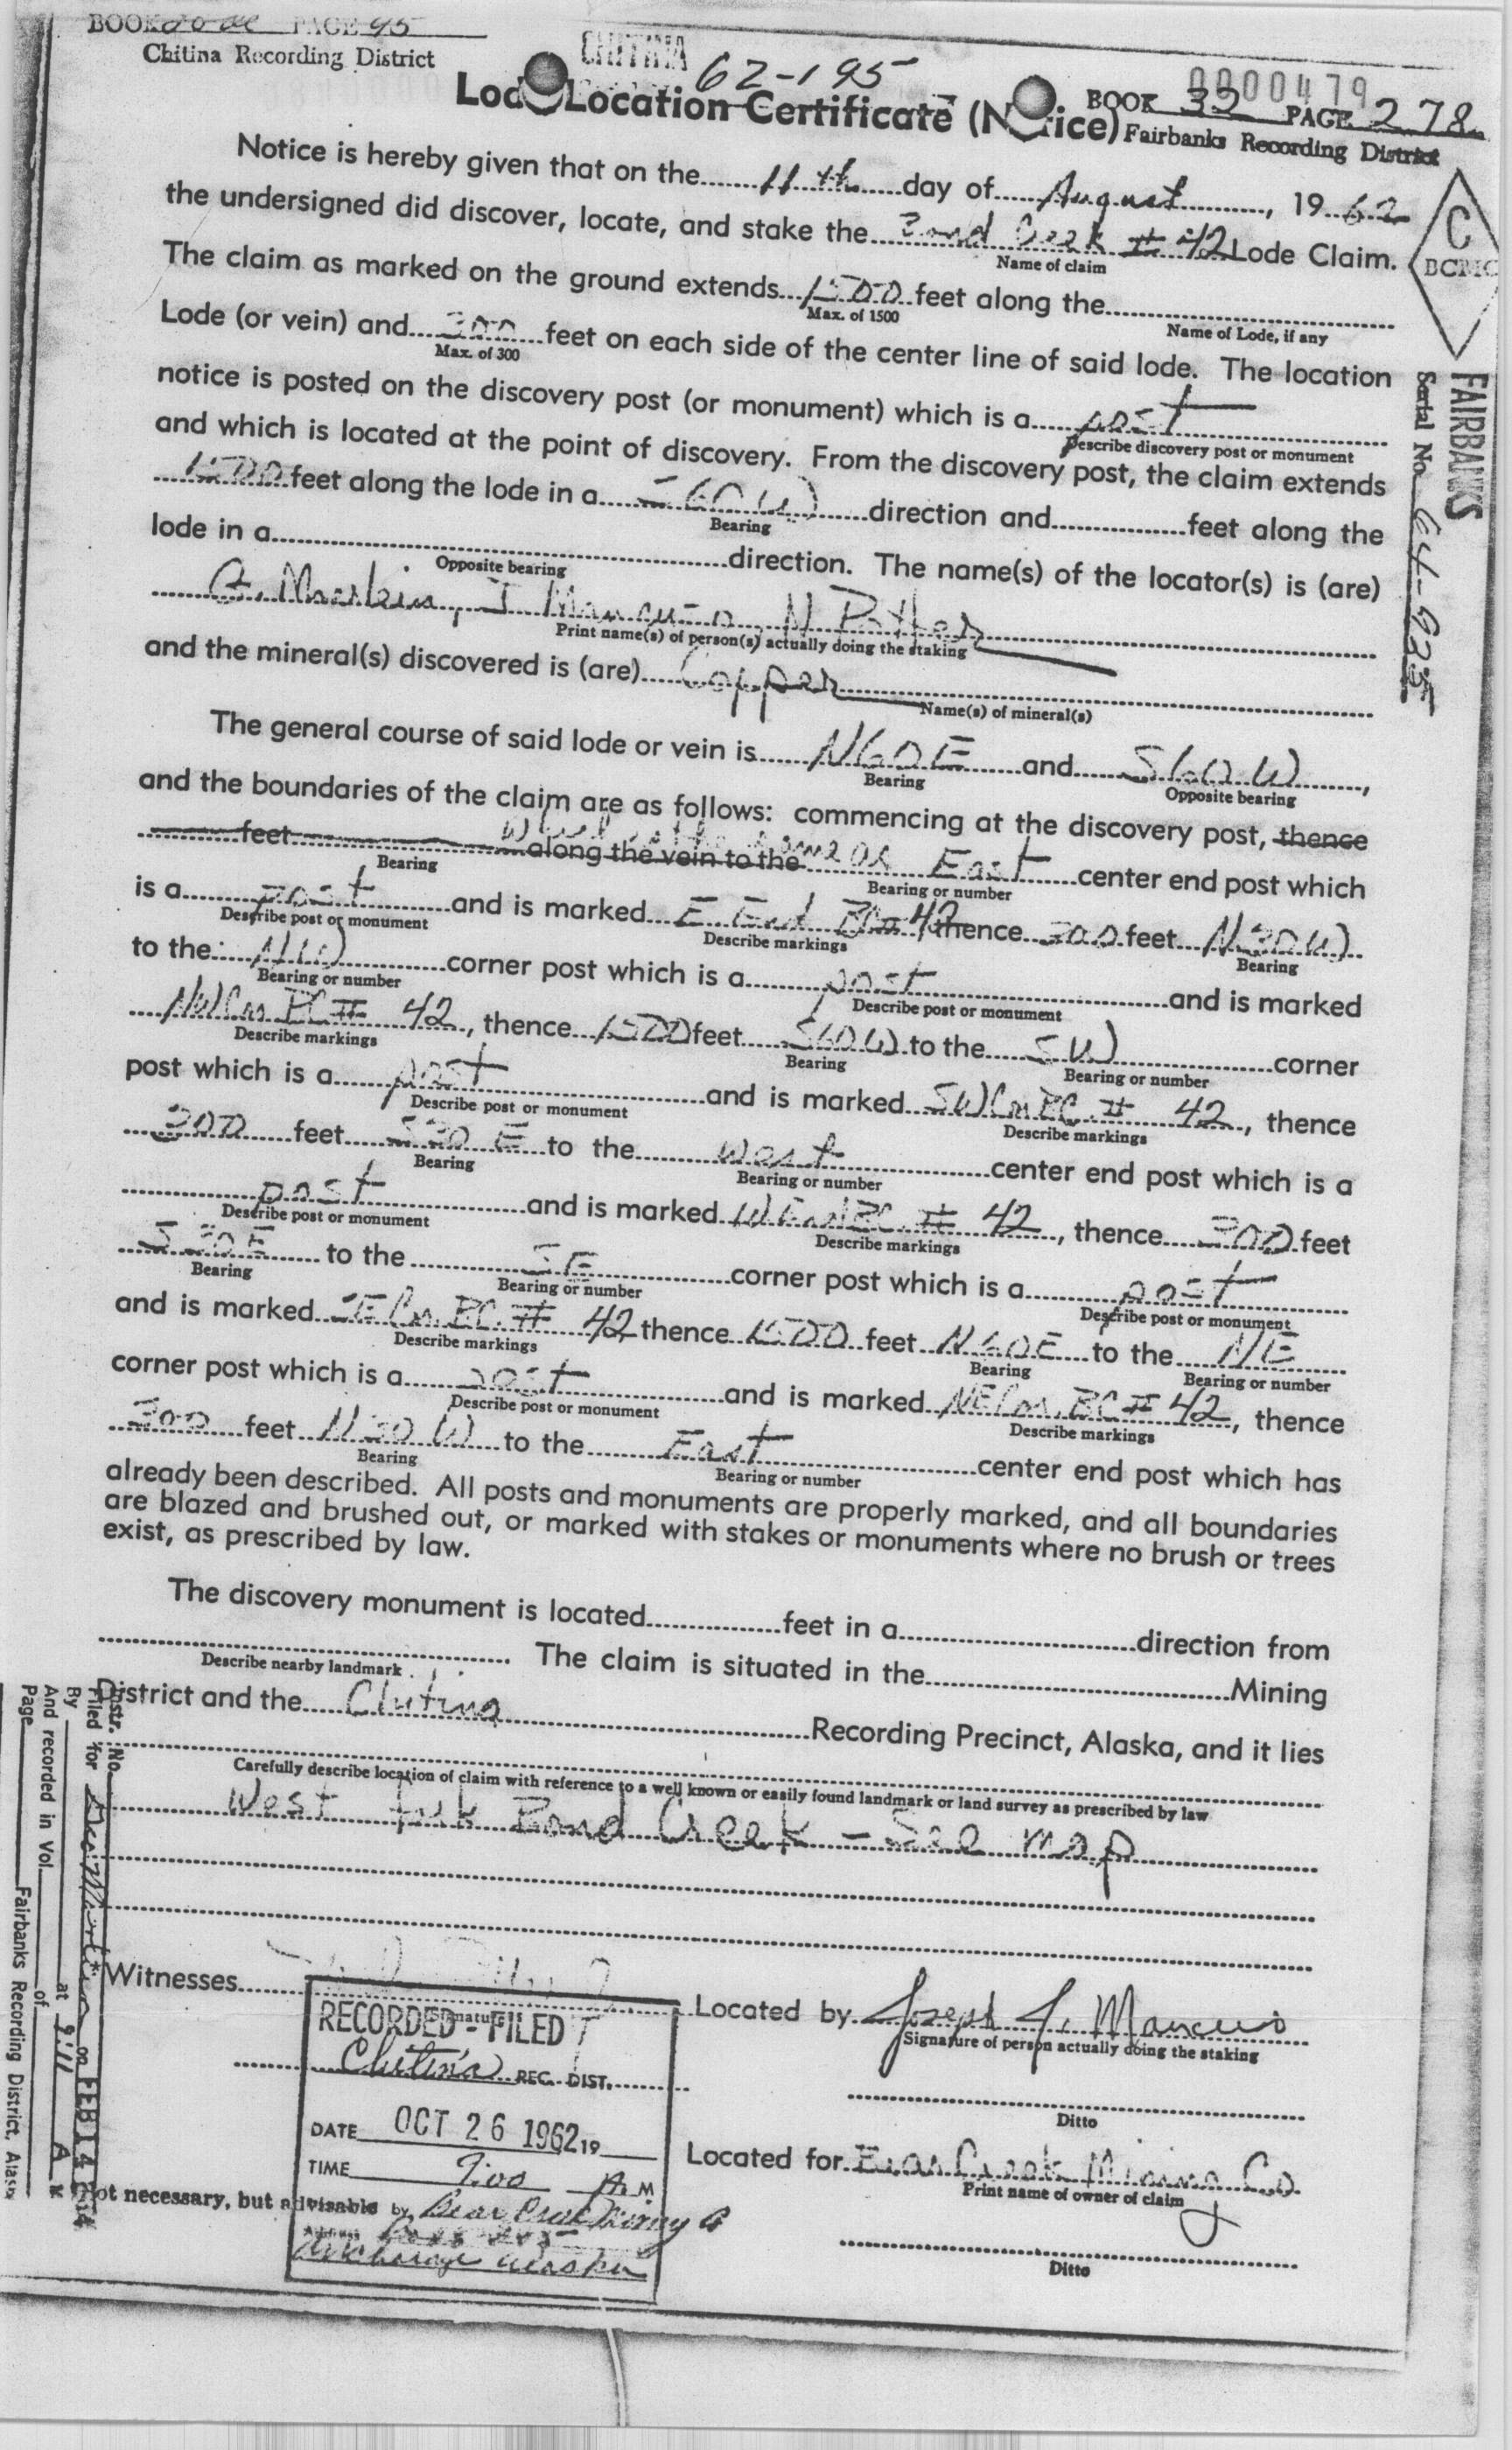 BOOK Lode PAGE 95
Chitina Recording District
CHITINA
62-195
0000479
Lode Location Certificate (Notice)
BOOK 32 PAGE 278
Fairbanks Recording District
Notice is hereby given that on the 11th day of August, 1962
the undersigned did discover, locate, and stake the Bond Creek # 42 Lode Claim.
Name of claim
C
BCMC
The claim as marked on the ground extends 1500 feet along the
Max. of 1500
Name of Lode, if any
Lode (or vein) and 300 feet on each side of the center line of said lode. The location
Max. of 300
notice is posted on the discovery post (or monument) which is a post
Describe discovery post or monument
and which is located at the point of discovery. From the discovery post, the claim extends
1500 feet along the lode in a S60W direction and feet along the
Bearing
lode in a direction. The name(s) of the locator(s) is (are)
Opposite bearing
G. Moerlein, J Mancuso, N Potter
Print name(s) of person(s) actually doing the staking
and the mineral(s) discovered is (are) Copper
Name(s) of mineral(s)
FAIRBANKS
Serial No. 64-985
The general course of said lode or vein is N60E and S60W,
Bearing
Opposite bearing
and the boundaries of the claim are as follows: commencing at the discovery post, thence
which is the same as
feet along the vein to the East center end post which
Bearing
Bearing or number
is a post and is marked E End BC # 42, thence 300 feet N30W
Describe post or monument
Describe markings
Bearing
to the NW corner post which is a post and is marked
Bearing or number
Describe post or monument
NWCor BC # 42, thence 1500 feet S60W to the SW corner
Describe markings
Bearing
Bearing or number
post which is a post and is marked SWCor BC # 42, thence
Describe post or monument
Describe markings
300 feet S30E to the West center end post which is a
Bearing
Bearing or number
post and is marked W End BC # 42, thence 300 feet
Describe post or monument
Describe markings
S30E to the SE corner post which is a post
Bearing
Bearing or number
Describe post or monument
and is marked SECor. BC. # 42 thence 1500 feet N60E to the NE
Describe markings
Bearing
Bearing or number
corner post which is a post and is marked NECor. BC # 42, thence
Describe post or monument
Describe markings
300 feet N30W to the East center end post which has
Bearing
Bearing or number
already been described. All posts and monuments are properly marked, and all boundaries
are blazed and brushed out, or marked with stakes or monuments where no brush or trees
exist, as prescribed by law.
The discovery monument is located feet in a direction from
The claim is situated in the Mining
Describe nearby landmark
District and the Chitina Recording Precinct, Alaska, and it lies
Carefully describe location of claim with reference to a well known or easily found landmark or land survey as prescribed by law
West fork Bond Creek - See map
Instr. No.
Filed for on FEB 14
By at 9:11 A
And recorded in Vol. of
Page Fairbanks Recording District, Alaska
*Witnesses
Signature
Located by Joseph J. Mancuso
Signature of person actually doing the staking
Ditto
RECORDED - FILED
Chitina REC. DIST.
DATE OCT 26 1962 19
TIME 9:00 A. M
by Bear Creek Mining Co
Address
Anchorage Alaska
*Not necessary, but advisable
Located for Bear Creek Mining Co.
Print name of owner of claim
Ditto